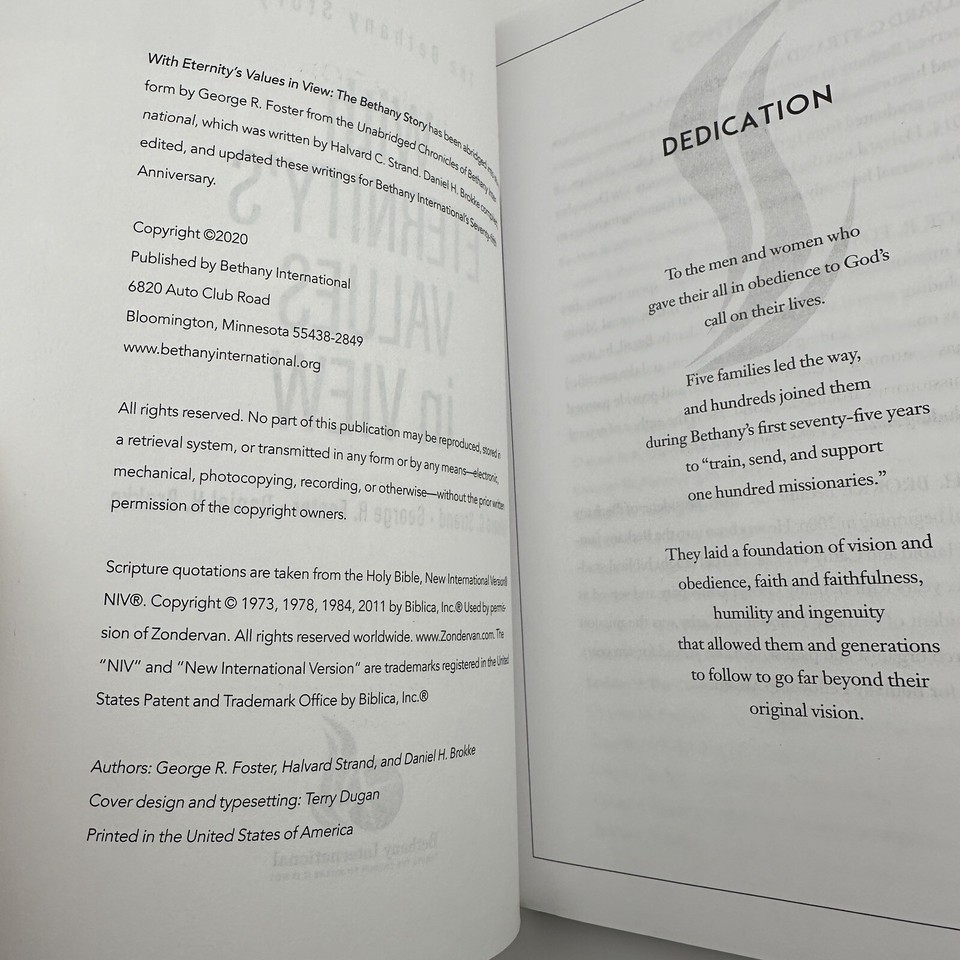 With Eternity's Values in View: The Bethany Story has been abridged into
form by George R. Foster from the Unabridged Chronicles of Bethany Inter-
national, which was written by Halvard C. Strand. Daniel H. Brokke compiled,
edited, and updated these writings for Bethany International's Seventy-fifth
Anniversary.
Copyright ©2020
Published by Bethany International
6820 Auto Club Road
Bloomington, Minnesota 55438-2849
www.bethanyinternational.org
All rights reserved. No part of this publication may be reproduced, stored in
a retrieval system, or transmitted in any form or by any means—electronic,
mechanical, photocopying, recording, or otherwise—without the prior written
permission of the copyright owners.
Scripture quotations are taken from the Holy Bible, New International Version®
NIV®. Copyright © 1973, 1978, 1984, 2011 by Biblica, Inc.® Used by permis-
sion of Zondervan. All rights reserved worldwide. www.Zondervan.com. The
"NIV" and "New International Version" are trademarks registered in the United
States Patent and Trademark Office by Biblica, Inc.®
Authors: George R. Foster, Halvard Strand, and Daniel H. Brokke
Cover design and typesetting: Terry Dugan
Printed in the United States of America
DEDICATION
To the men and women who
gave their all in obedience to God's
call on their lives.
Five families led the way,
and hundreds joined them
during Bethany's first seventy-five years
to "train, send, and support
one hundred missionaries."
They laid a foundation of vision and
obedience, faith and faithfulness,
humility and ingenuity
that allowed them and generations
to follow to go far beyond their
original vision.